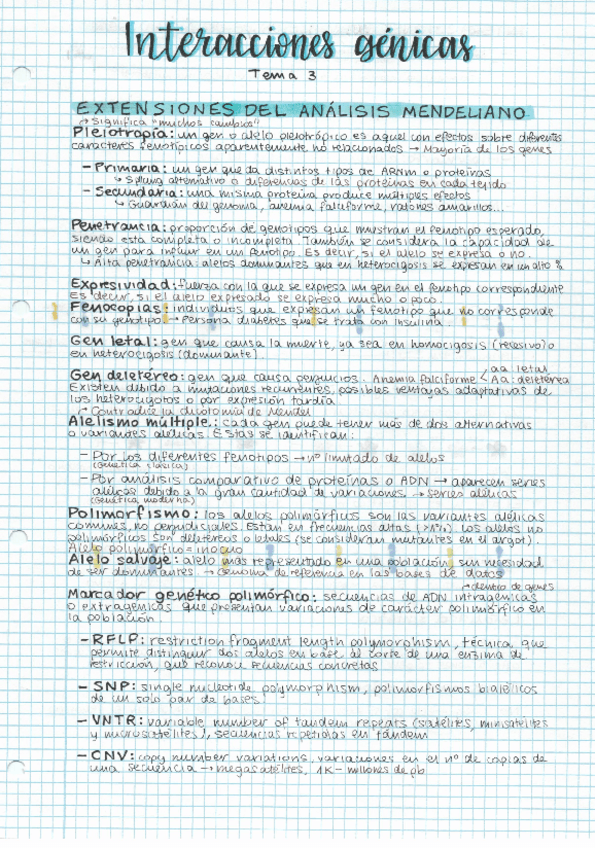 Interacciones génicas
Tema 3
EXTENSIONES DEL ANÁLISIS MENDELIANO
↱ Significa "muchos cambios"
Pleiotropía: un gen o alelo pleiotrópico es aquel con efectos sobre diferentes
caracteres fenotípicos aparentemente no relacionados → Mayoría de los genes
- Primaria: un gen que da distintos tipos de ARNm o proteínas
↳ Splicing alternativo o diferencias de las proteínas en cada tejido
- Secundaria: una misma proteína produce múltiples efectos
↳ Guardián del genoma, anemia falciforme, ratones amarillos...
Penetrancia: proporción de genotipos que muestran el fenotipo esperado,
siendo esta completa o incompleta. También se considera la capacidad de
un gen para influir en un fenotipo. Es decir, si el alelo se expresa o no.
↳ Alta penetrancia: alelos dominantes que en heterocigosis se expresan en un alto %
Expresividad: fuerza con la que se expresa un gen en el fenotipo correspondiente
Es decir, si el alelo expresado se expresa mucho o poco.
Fenocopias: individuos que expresan un fenotipo que no corresponde
con su genotipo → Persona diabetes que se trata con insulina
Gen letal: gen que causa la muerte, ya sea en homocigosis (recesivo) o
en heterocigosis (dominante).
Gen deletéreo: gen que causa perjuicios. Anemia falciforme < aa letal
Aa: deletérea
Existen debido a mutaciones recurrentes, posibles ventajas adaptativas de
los heterocigotos o por expresión tardía
↱ Contradice la dicotomía de Mendel
Alelismo múltiple: cada gen puede tener más de dos alternativas
o variantes alélicas. Estas se identifican:
- Por los diferentes fenotipos → nº limitado de alelos
(Genética clásica)
- Por análisis comparativo de proteínas o ADN → aparecen series
alélicas debido a la gran cantidad de variaciones → series alélicas
(Genética moderna)
Polimorfismo: los alelos polimórficos son las variantes alélicas
comunes, no perjudiciales. Están en frecuencias altas (>1%). Los alelos no
polimórficos son deletéreos o letales (se consideran mutantes en el argot).
Alelo polimórfico = inocuo
Alelo salvaje: alelo más representado en una población sin necesidad
de ser dominantes → Genoma de referencia en las bases de datos
↱ dentro de genes
Marcador genético polimórfico: secuencias de ADN intragénicas
o extragénicas que presentan variaciones de carácter polimórfico en
la población.
- RFLP: restriction fragment length polymorphism, técnica que
permite distinguir dos alelos en base al corte de una enzima de
restricción, que reconoce secuencias concretas
- SNP: single nucleotide polymorphism, polimorfismos bialélicos
de un solo par de bases
- VNTR: variable number of tandem repeats (satélites, minisatélites
y microsatélites), secuencias repetidas en tándem
- CNV: copy number variations, variaciones en el nº de copias de
una secuencia → megasatélites, 1K - millones de pb